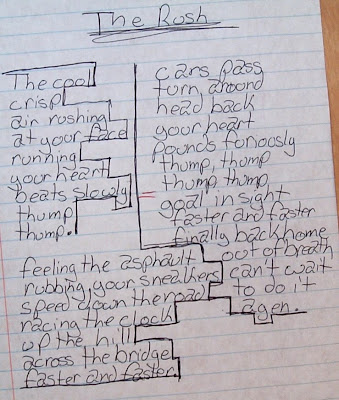 The Rush
The cool
crisp
air rushing
at your face
running
your heart
beats slowly
thump
thump.
feeling the asphault
rubbing your sneakers
speed down the road
racing the clock
up the hill
across the bridge
faster and faster.
cars pass
turn around
head back
your heart
pounds furiously
thump, thump
thump, thump
goal in sight
faster and faster
finally back home
out of breath
can't wait
to do it
agen.